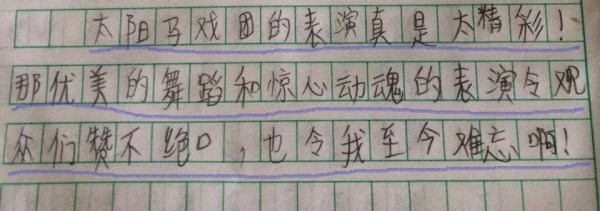 太阳马戏团的表演真是太精彩！
那优美的舞蹈和惊心动魂的表演令观
众们赞不绝口，也令我至今难忘啊！